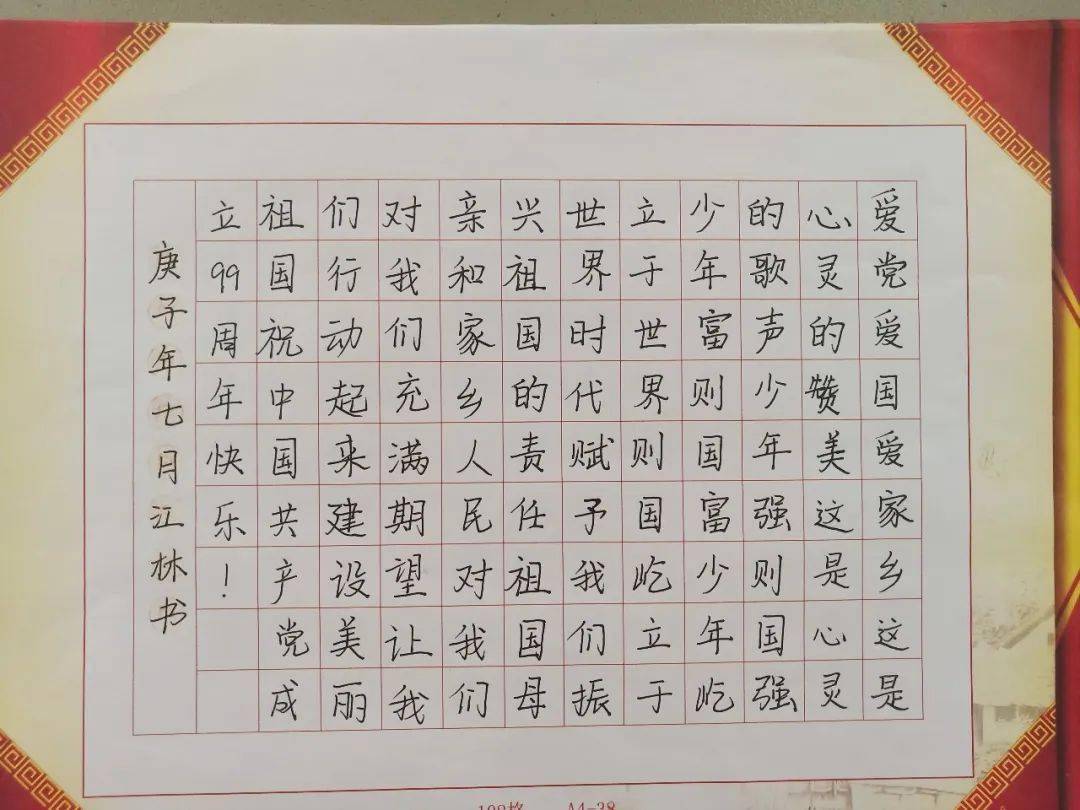 爱党爱国爱家乡这是
心灵的赞美这是心灵
的歌声少年强则国强
少年富则国富少年屹
立于世界则国屹立于
世界时代赋予我们振
兴祖国的责任祖国母
亲和家乡人民对我们
对我们充满期望让我
们行动起来建设美丽
祖国祝中国共产党成
立99周年快乐！
庚子年七月江林书
108格 A4-38